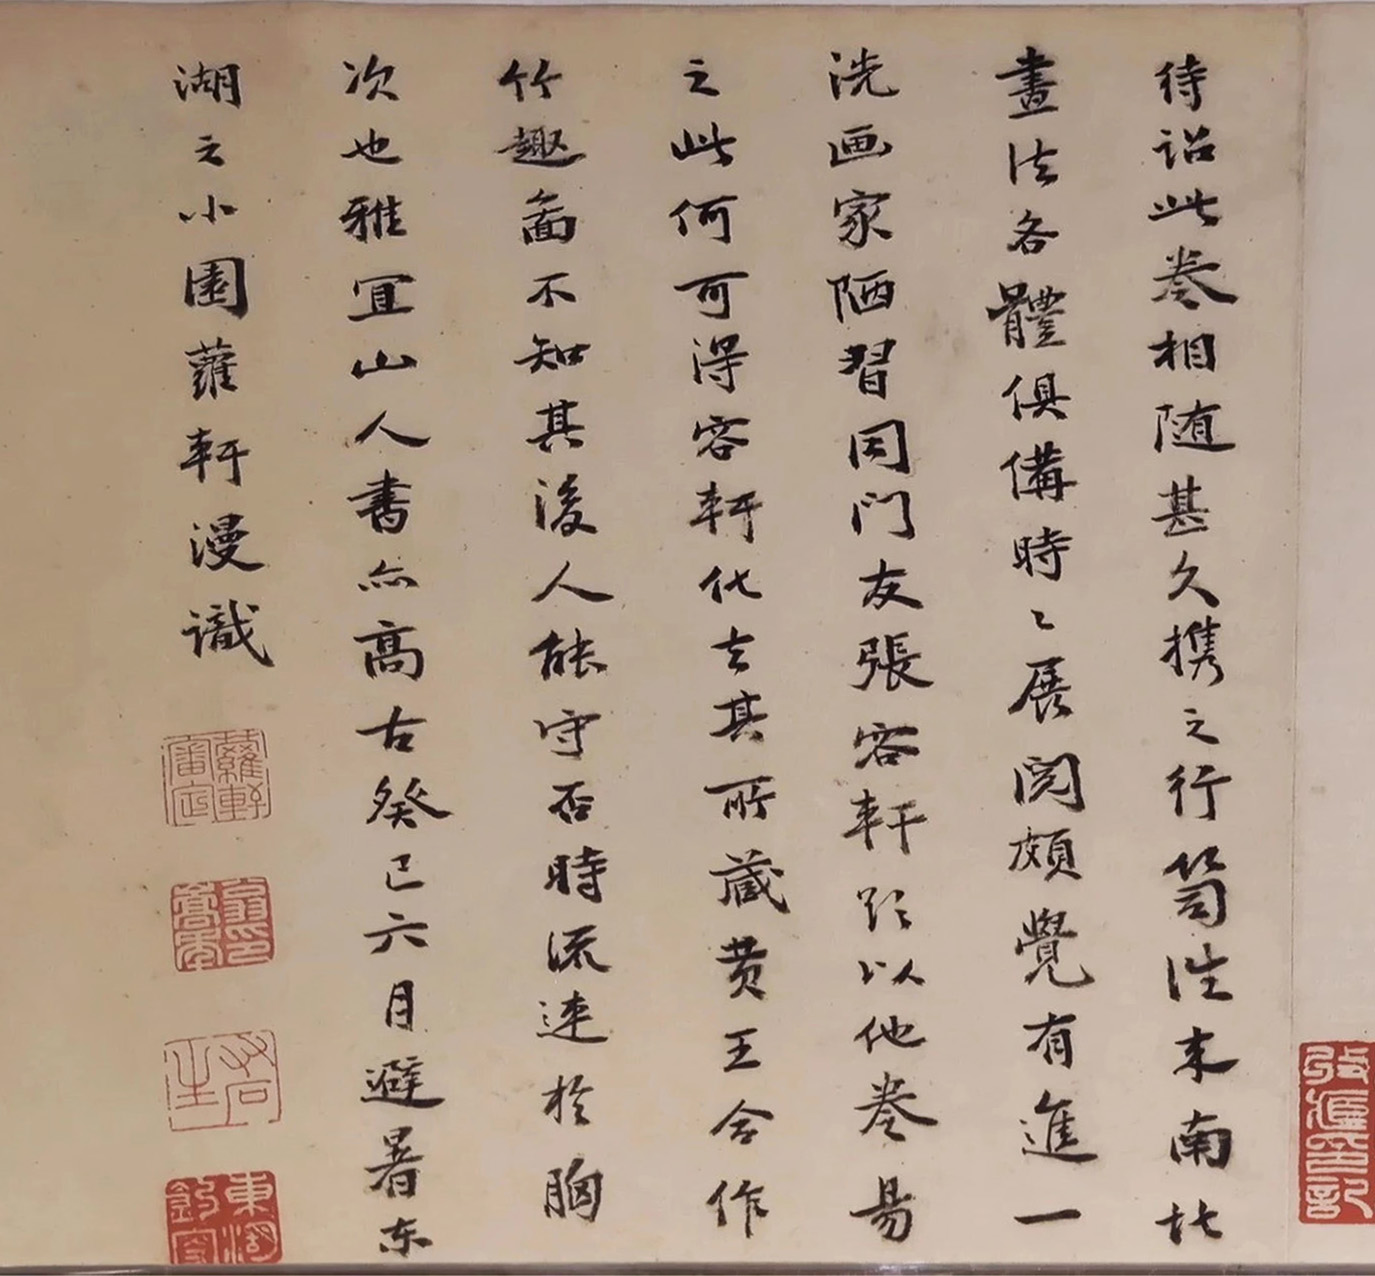 待詔此卷相随甚久携之行笥往来南北
畫法各體俱備時〻展閲頗覺有進一
洗画家陋習同門友張容軒欲以他卷易
之此何可得容軒化去其所蔵黄王合作
竹趣啚不知其後人能守否時流連於胸
次也雅宜山人書亦高古癸巳六月避暑东
湖之小園蘿軒漫識
蘿軒審定
翁印嵩年
東湖釣客